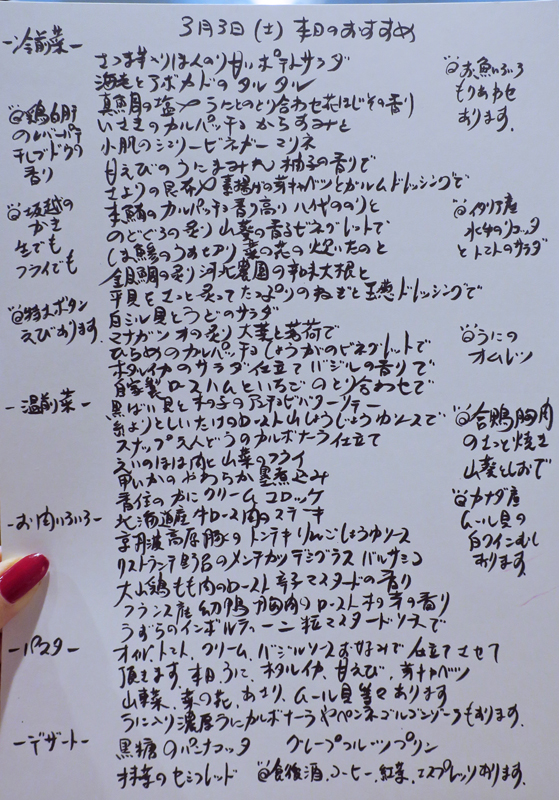 3月3日(土) 本日のおすすめ
-冷前菜-
さつま芋入りほんのり甘いポテトサラダ
海老とアボカドのタルタル
真鯛の塩〆うにとのとり合わせ花ほじその香り
いさきのカルパッチョ からすみと
小肌のシェリービネガーマリネ
甘えびのうにまみれ 柚子の香りで
さよりの昆布〆 素揚げの芽キャベツとガルムドレッシングで
本鮪のカルパッチョ 香り高り 八代ののりと
のどぐろの炙り 山葵の香るビネグレットで
しま鯵のうす切り 菜の花の炊いたのと
金目鯛の炙り 河北農園の辛味大根と
平貝をさっと炙って たっぷりのねぎと玉葱ドレッシングで
白ミル貝とうどのサラダ
マナガツオの炙り 大葉と茗荷で
ひらめのカルパッチョ しょうがのビネグレットで
ホタルイカのサラダ仕立て バジルの香りで
自家製ロースハムといちごのとり合わせで
◎お魚いろいろ
もりあわせ
あります。
◎鶏白肝
のレバーパテ
干しブドウの
香り
◎坂越の
かき
生でも
フライでも
◎イタリア産
水牛のリコッタ
とトマトのサラダ
◎特大ボタン
えびあります。
◎うにの
オムレツ
-温前菜-
黒ばい貝と竹の子のアンチョビバターソテー
糸よりとしいたけのロースト山しょうじょうゆソースで
スナップえんどうのカルボナーラ仕立て
えいのほほ肉と山菜のフライ
甲いかのやわらか墨煮込み
香住のカニクリームコロッケ
◎合鴨胸肉
のさっと焼き
山葵としおで
◎カナダ産
ムール貝の
白ワインむし
あります。
-お肉いろいろ-
北海道産牛ロース肉のステーキ
京丹波高原豚のトンテキ りんごしょうゆソース
リストランテ野呂のメンチカツ デミグラス バルサミコ
大山鶏もも肉のロースト 辛子マスタードの香り
フランス産 幼鴨胸肉のロースト 木の芽の香り
うずらのインボルティーニ 粒マスタードソースで
-パスタ-
オイル、トマト、クリーム、バジルソースお好みで仕立てさせて
頂きます。本日、うに、ホタルイカ、甘えび、芽キャベツ
山東菜、菜の花、あさり、ムール貝等々あります
うに入り濃厚うにカルボナーラやペンネゴルゴンゾーラもあります。
-デザート-
黒糖のパンナコッタ グレープフルーツプリン
抹茶のセミフレッド ◎食後酒、コーヒー、紅茶、エスプレッソあります。